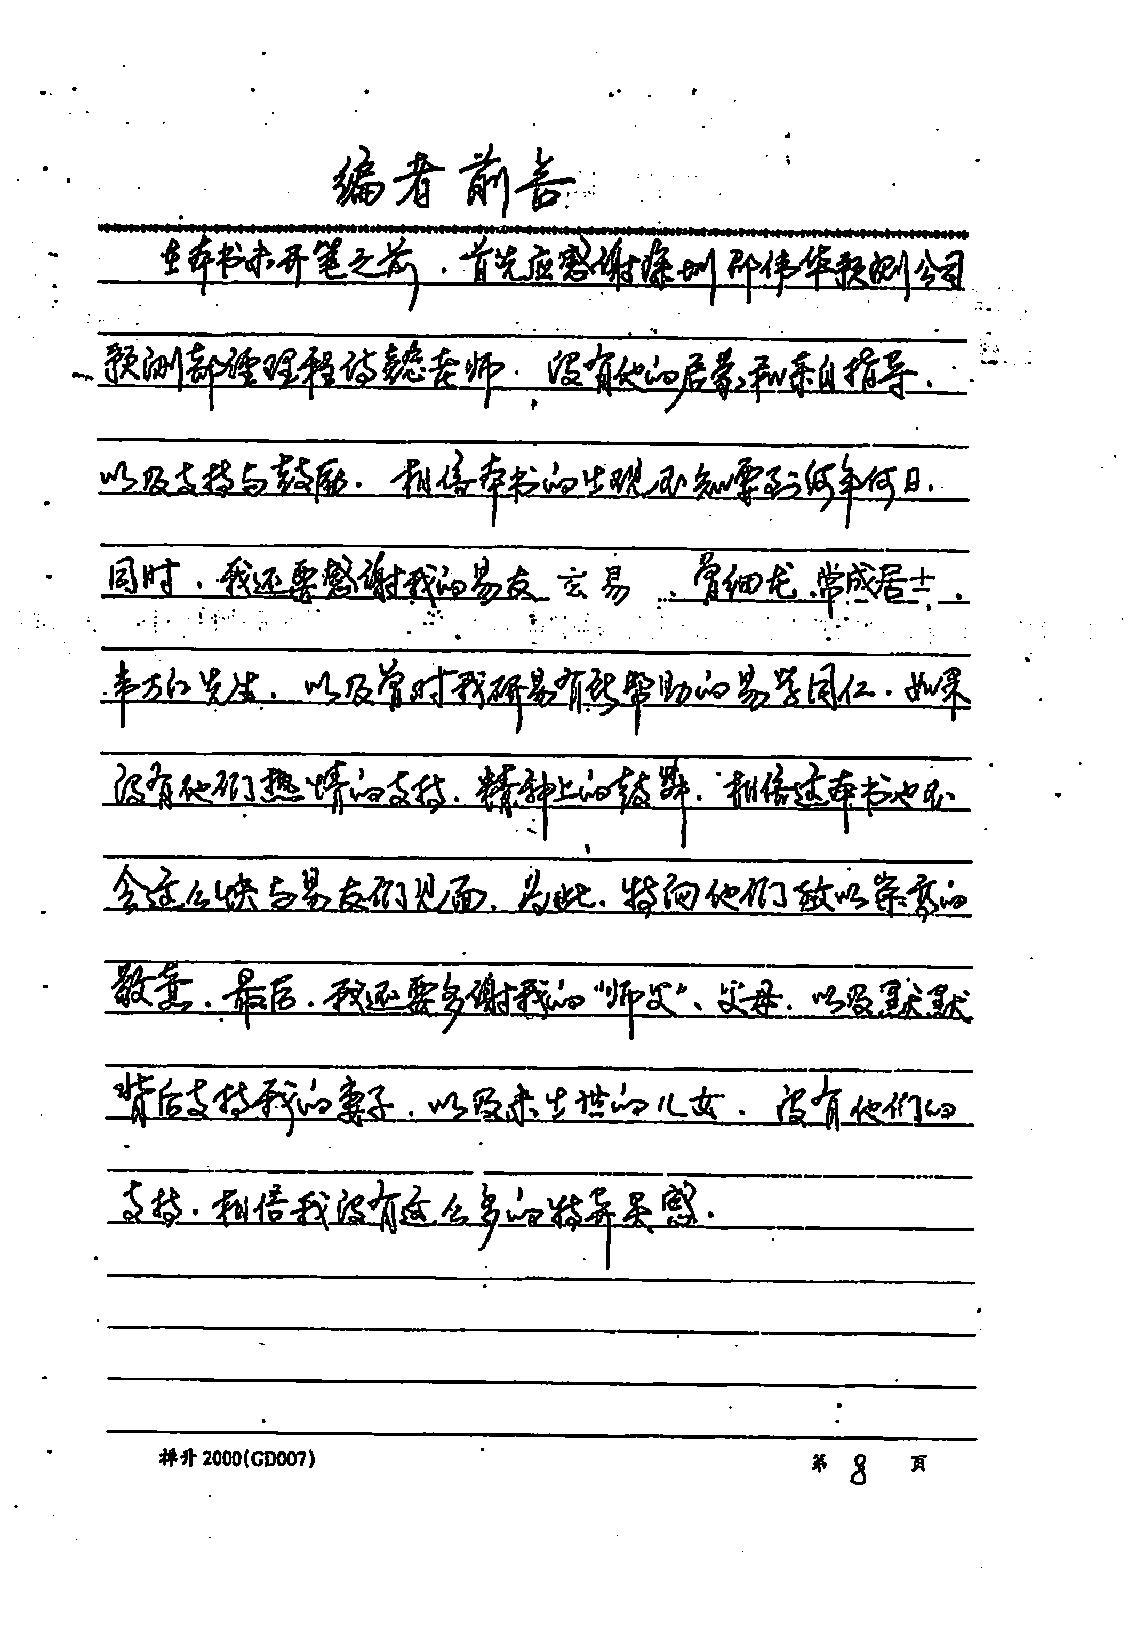 编者前言
在本书未开笔之前，首先应感谢深圳邵伟华预测公司
预测部经理程诗懿老师。没有他的启蒙和亲自指导，
以及支持与鼓励。相信本书的出现不知要到何年何日。
同时，我还要感谢我的易友 玄易、曾细龙、常成居士、
韦万红先生，以及曾对我研易有所帮助的易学同仁。如果
没有他们热情的支持，精神上的鼓舞，相信这本书也不
会这么快与易友们见面，为此，特向他们致以崇高的
敬意，最后，我还要多谢我的"师父"、父母，以及默默
背后支持我的妻子，以及未出世的儿女，没有他们的
支持，相信我没有这么多的特异灵感。
祥升 2000(GD007) 第 8 页